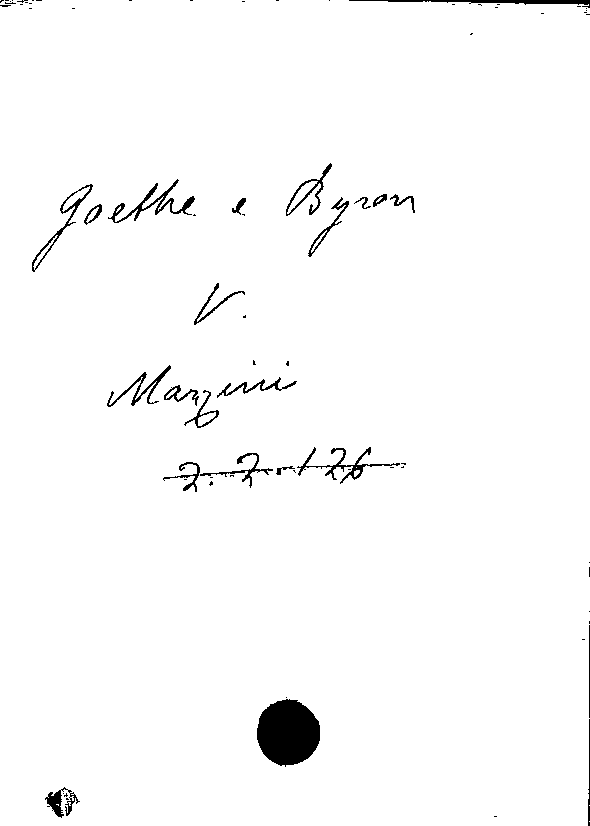 Goethe e Byron
V.
Mazzini
2.2.126